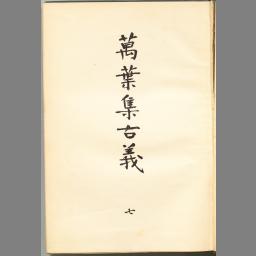 萬葉集古義
七